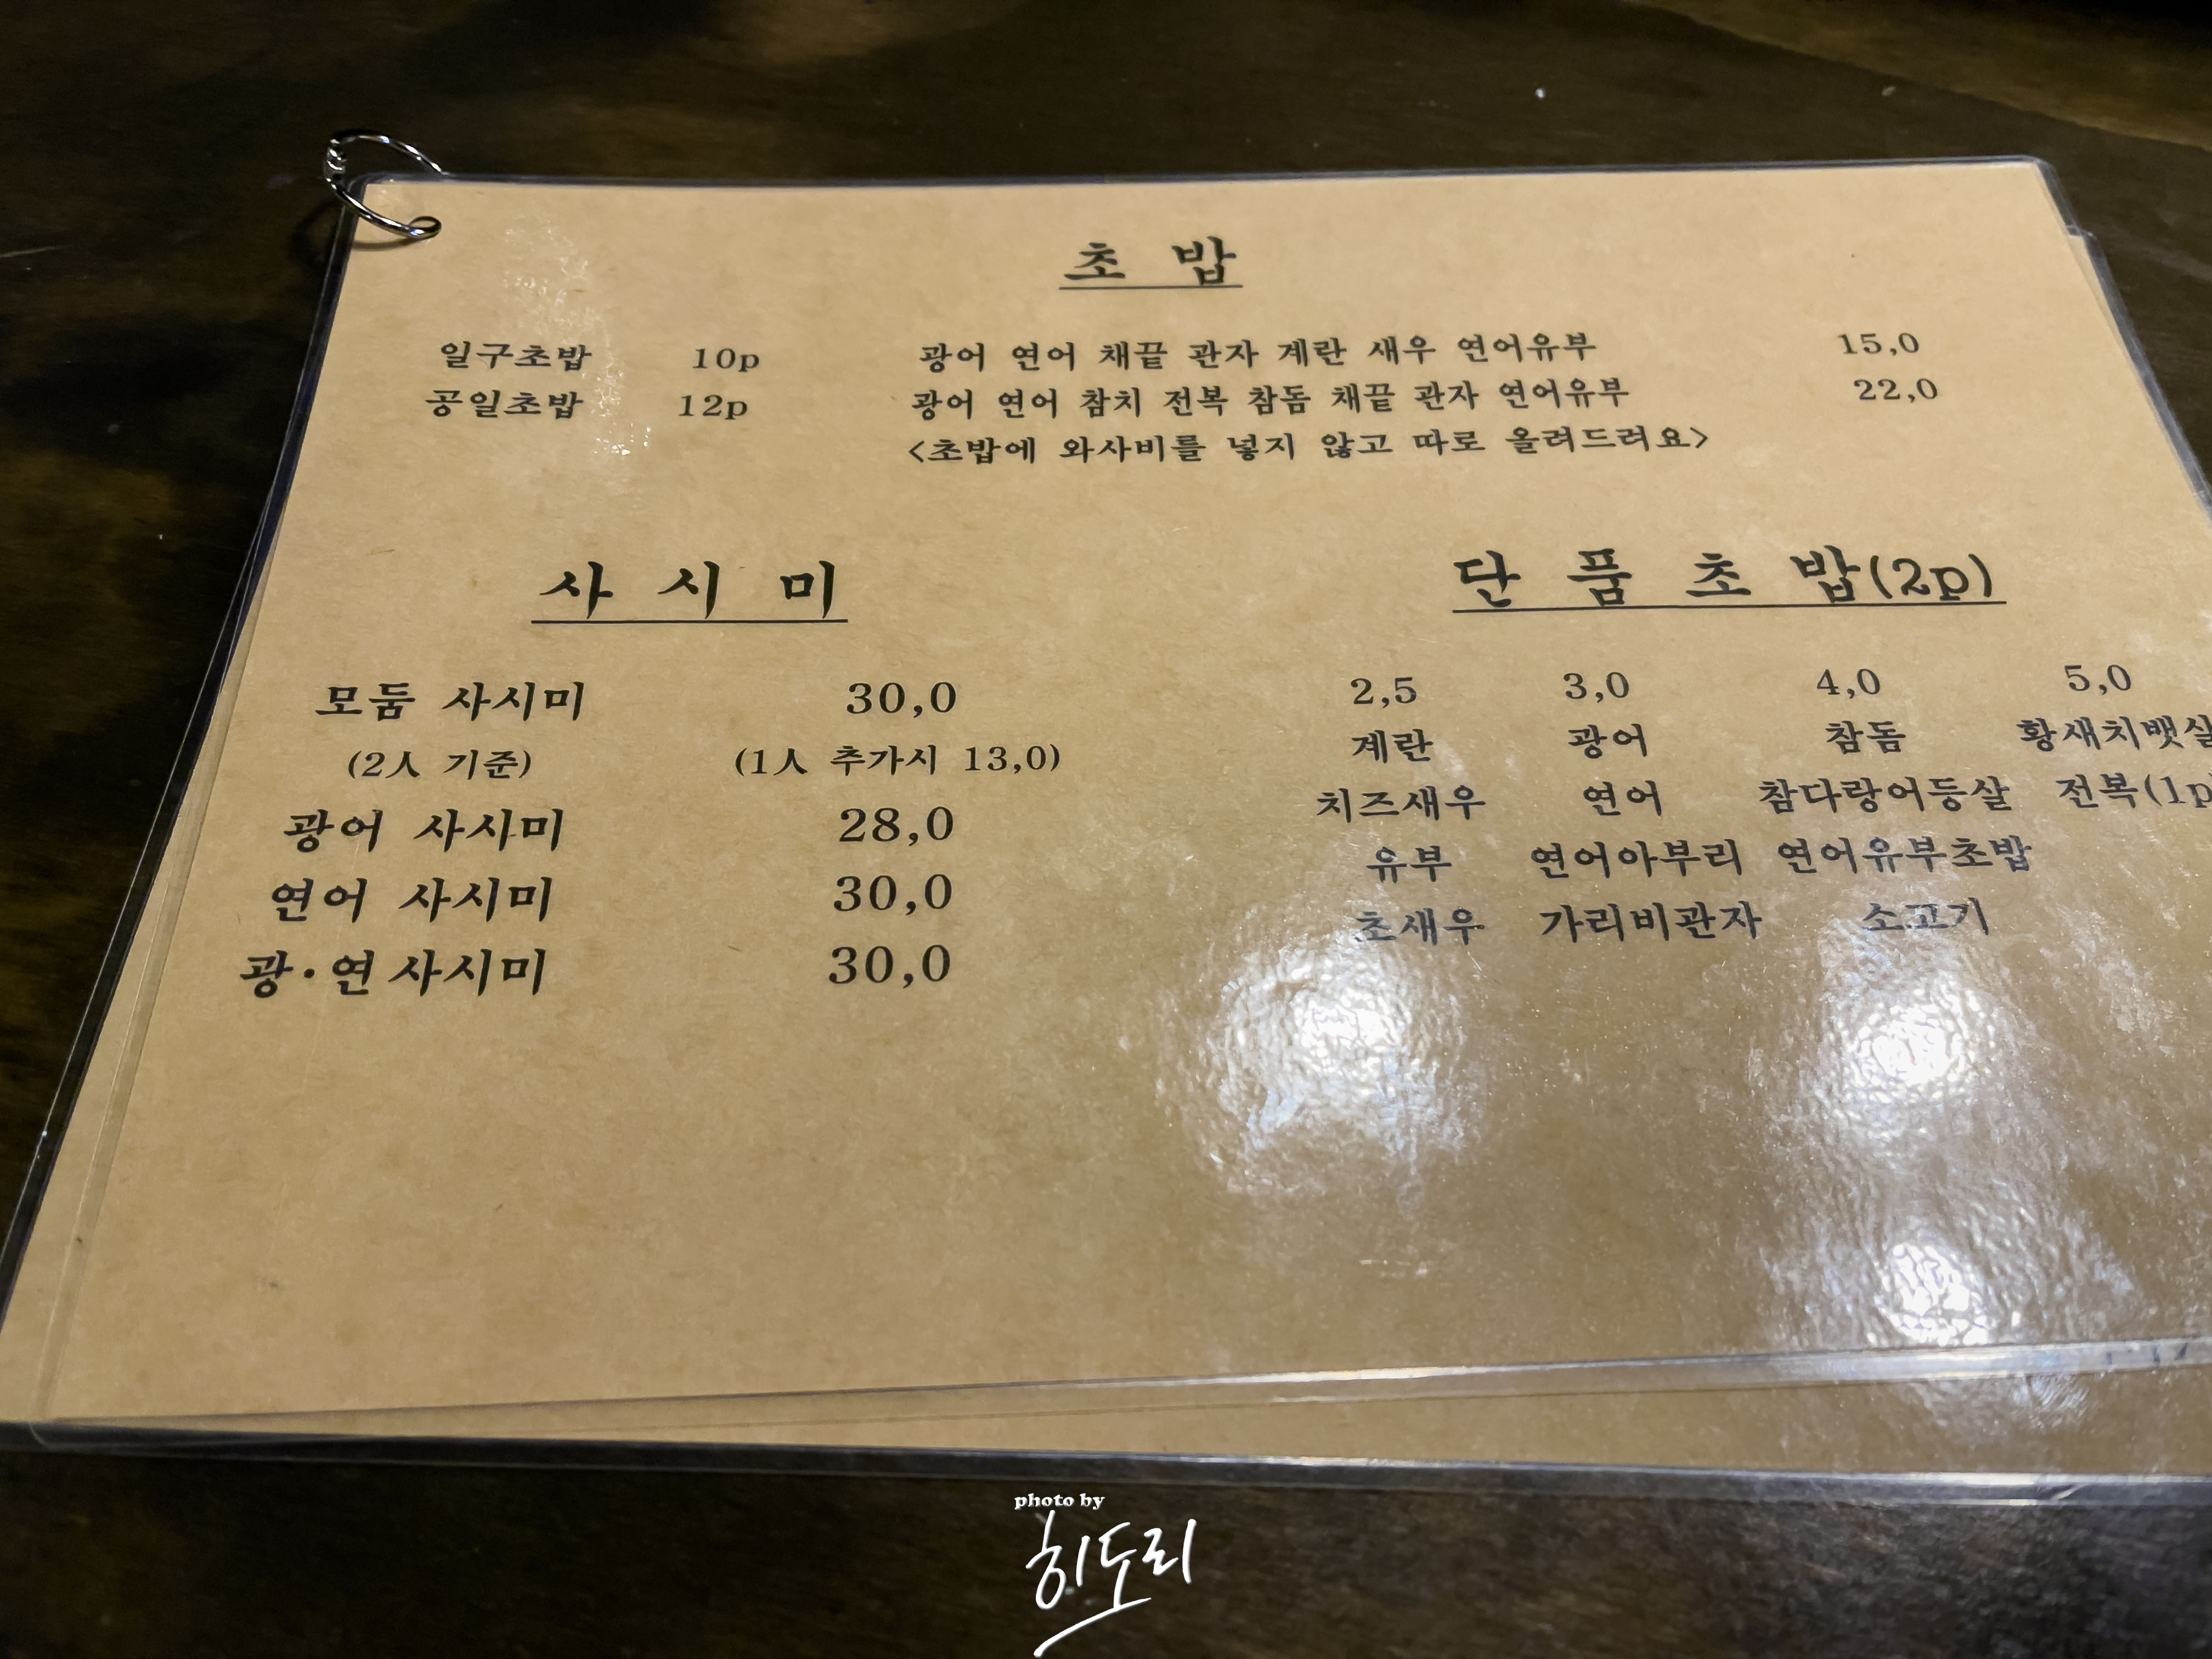 초 밥
일구초밥 10p 광어 연어 채끝 관자 계란 새우 연어유부 15,0
공일초밥 12p 광어 연어 참치 전복 참돔 채끝 관자 연어유부 22,0
<초밥에 와사비를 넣지 않고 따로 올려드려요>
사 시 미
모둠 사시미 30,0
(2人 기준) (1人 추가시 13,0)
광어 사시미 28,0
연어 사시미 30,0
광·연 사시미 30,0
단 품 초 밥(2p)
2,5 3,0 4,0 5,0
계란 광어 참돔 황새치뱃살
치즈새우 연어 참다랑어등살 전복(1p
유부 연어아부리 연어유부초밥
초새우 가리비관자 소고기
photo by
히도리